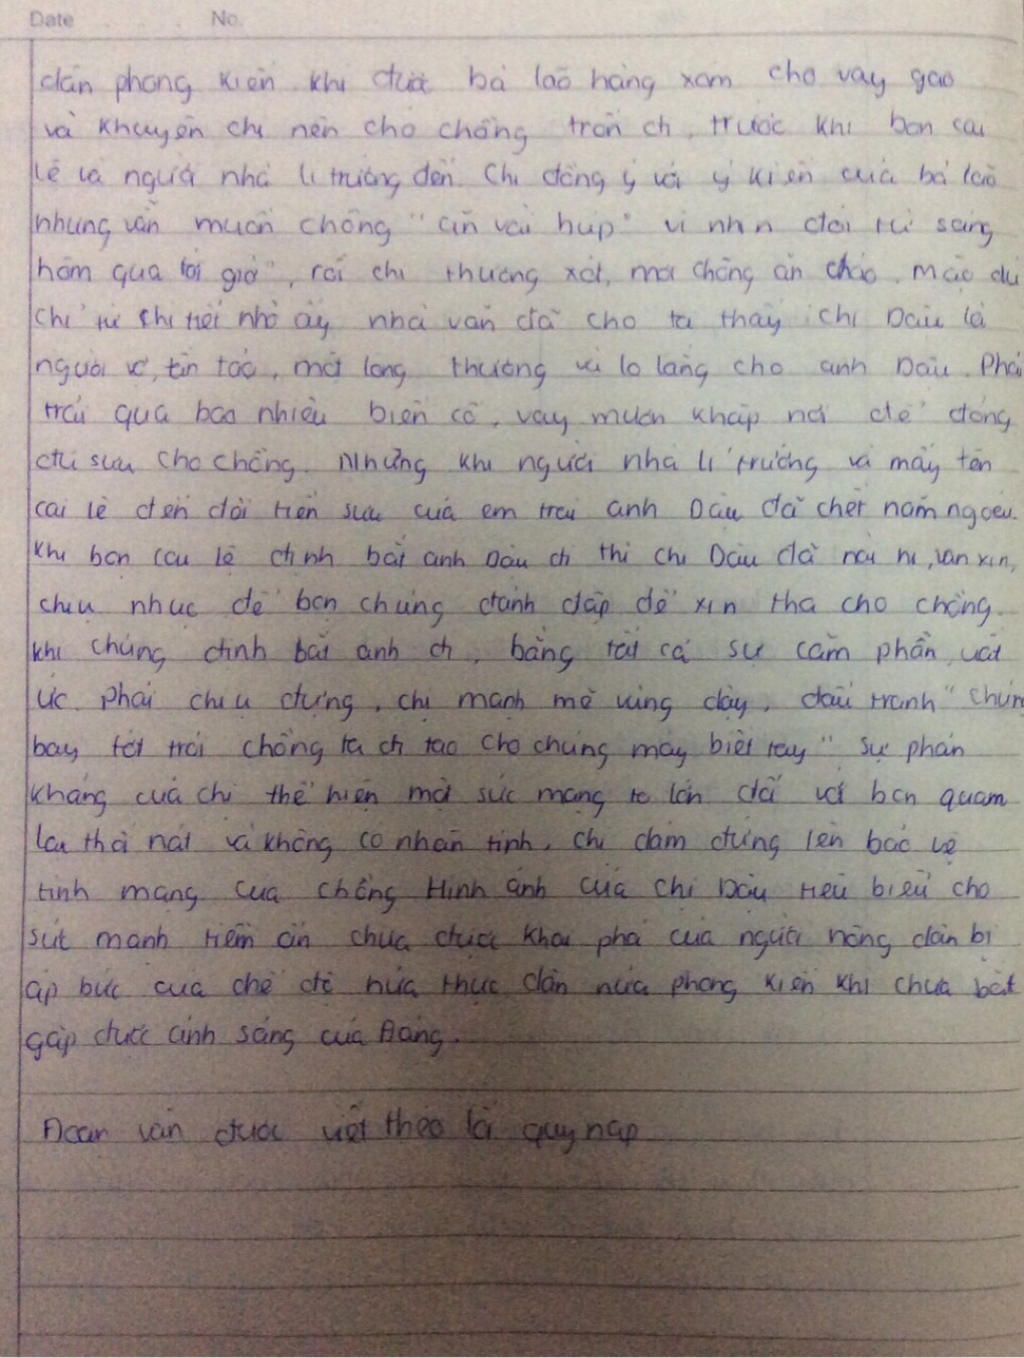 Date No.
dân phong kiến. khi được bà lão hàng xóm cho vay gạo
và khuyên chị nên cho chồng trốn đi, trước khi bọn cai
lệ và người nhà lí trưởng đến. Chị đồng ý với ý kiến của bà lão
nhưng vẫn muốn chồng "ăn vài húp" vì nhịn đói từ sáng
hôm qua tới giờ", rồi chị thương xót, mời chồng ăn cháo. Mặc dù
chỉ từ chi tiết nhỏ ấy nhà văn đã cho ta thấy chị Dậu là
người vợ, tần tảo, một lòng thương và lo lắng cho anh Dậu. Phải
trải qua bao nhiêu biến cố, vay mượn khắp nơi để đóng
đủ sưu cho chồng. Nhưng khi người nhà lí trưởng và mấy tên
cai lệ đến đòi tiền sưu của em trai anh Dậu đã chết năm ngoái.
Khi bọn cai lệ định bắt anh Dậu đi thì chị Dậu đã nài nỉ, van xin,
chịu nhục để bọn chúng đánh đập để xin tha cho chồng.
khi chúng định bắt anh đi, bằng tất cả sự căm phẫn, uất
ức phải chịu đựng, chị mạnh mẽ vùng dậy, đấu tranh "chúng
bay tết trói chồng ta đi tao cho chúng mày biết tay" sự phản
kháng của chị thể hiện một sức mạng to lớn đối với bọn quan
lại thối nát và không có nhân tính, chị dám đứng lên bảo vệ
tính mạng của chồng Hình ảnh của chị Dậu tiêu biểu cho
sức mạnh tiềm ẩn chưa được khai phá của người nông dân bị
áp bức của chế độ nửa thực dân nửa phong kiến khi chưa bắt
gặp được ánh sáng của Đảng.
Đoạn văn được viết theo lối quy nạp